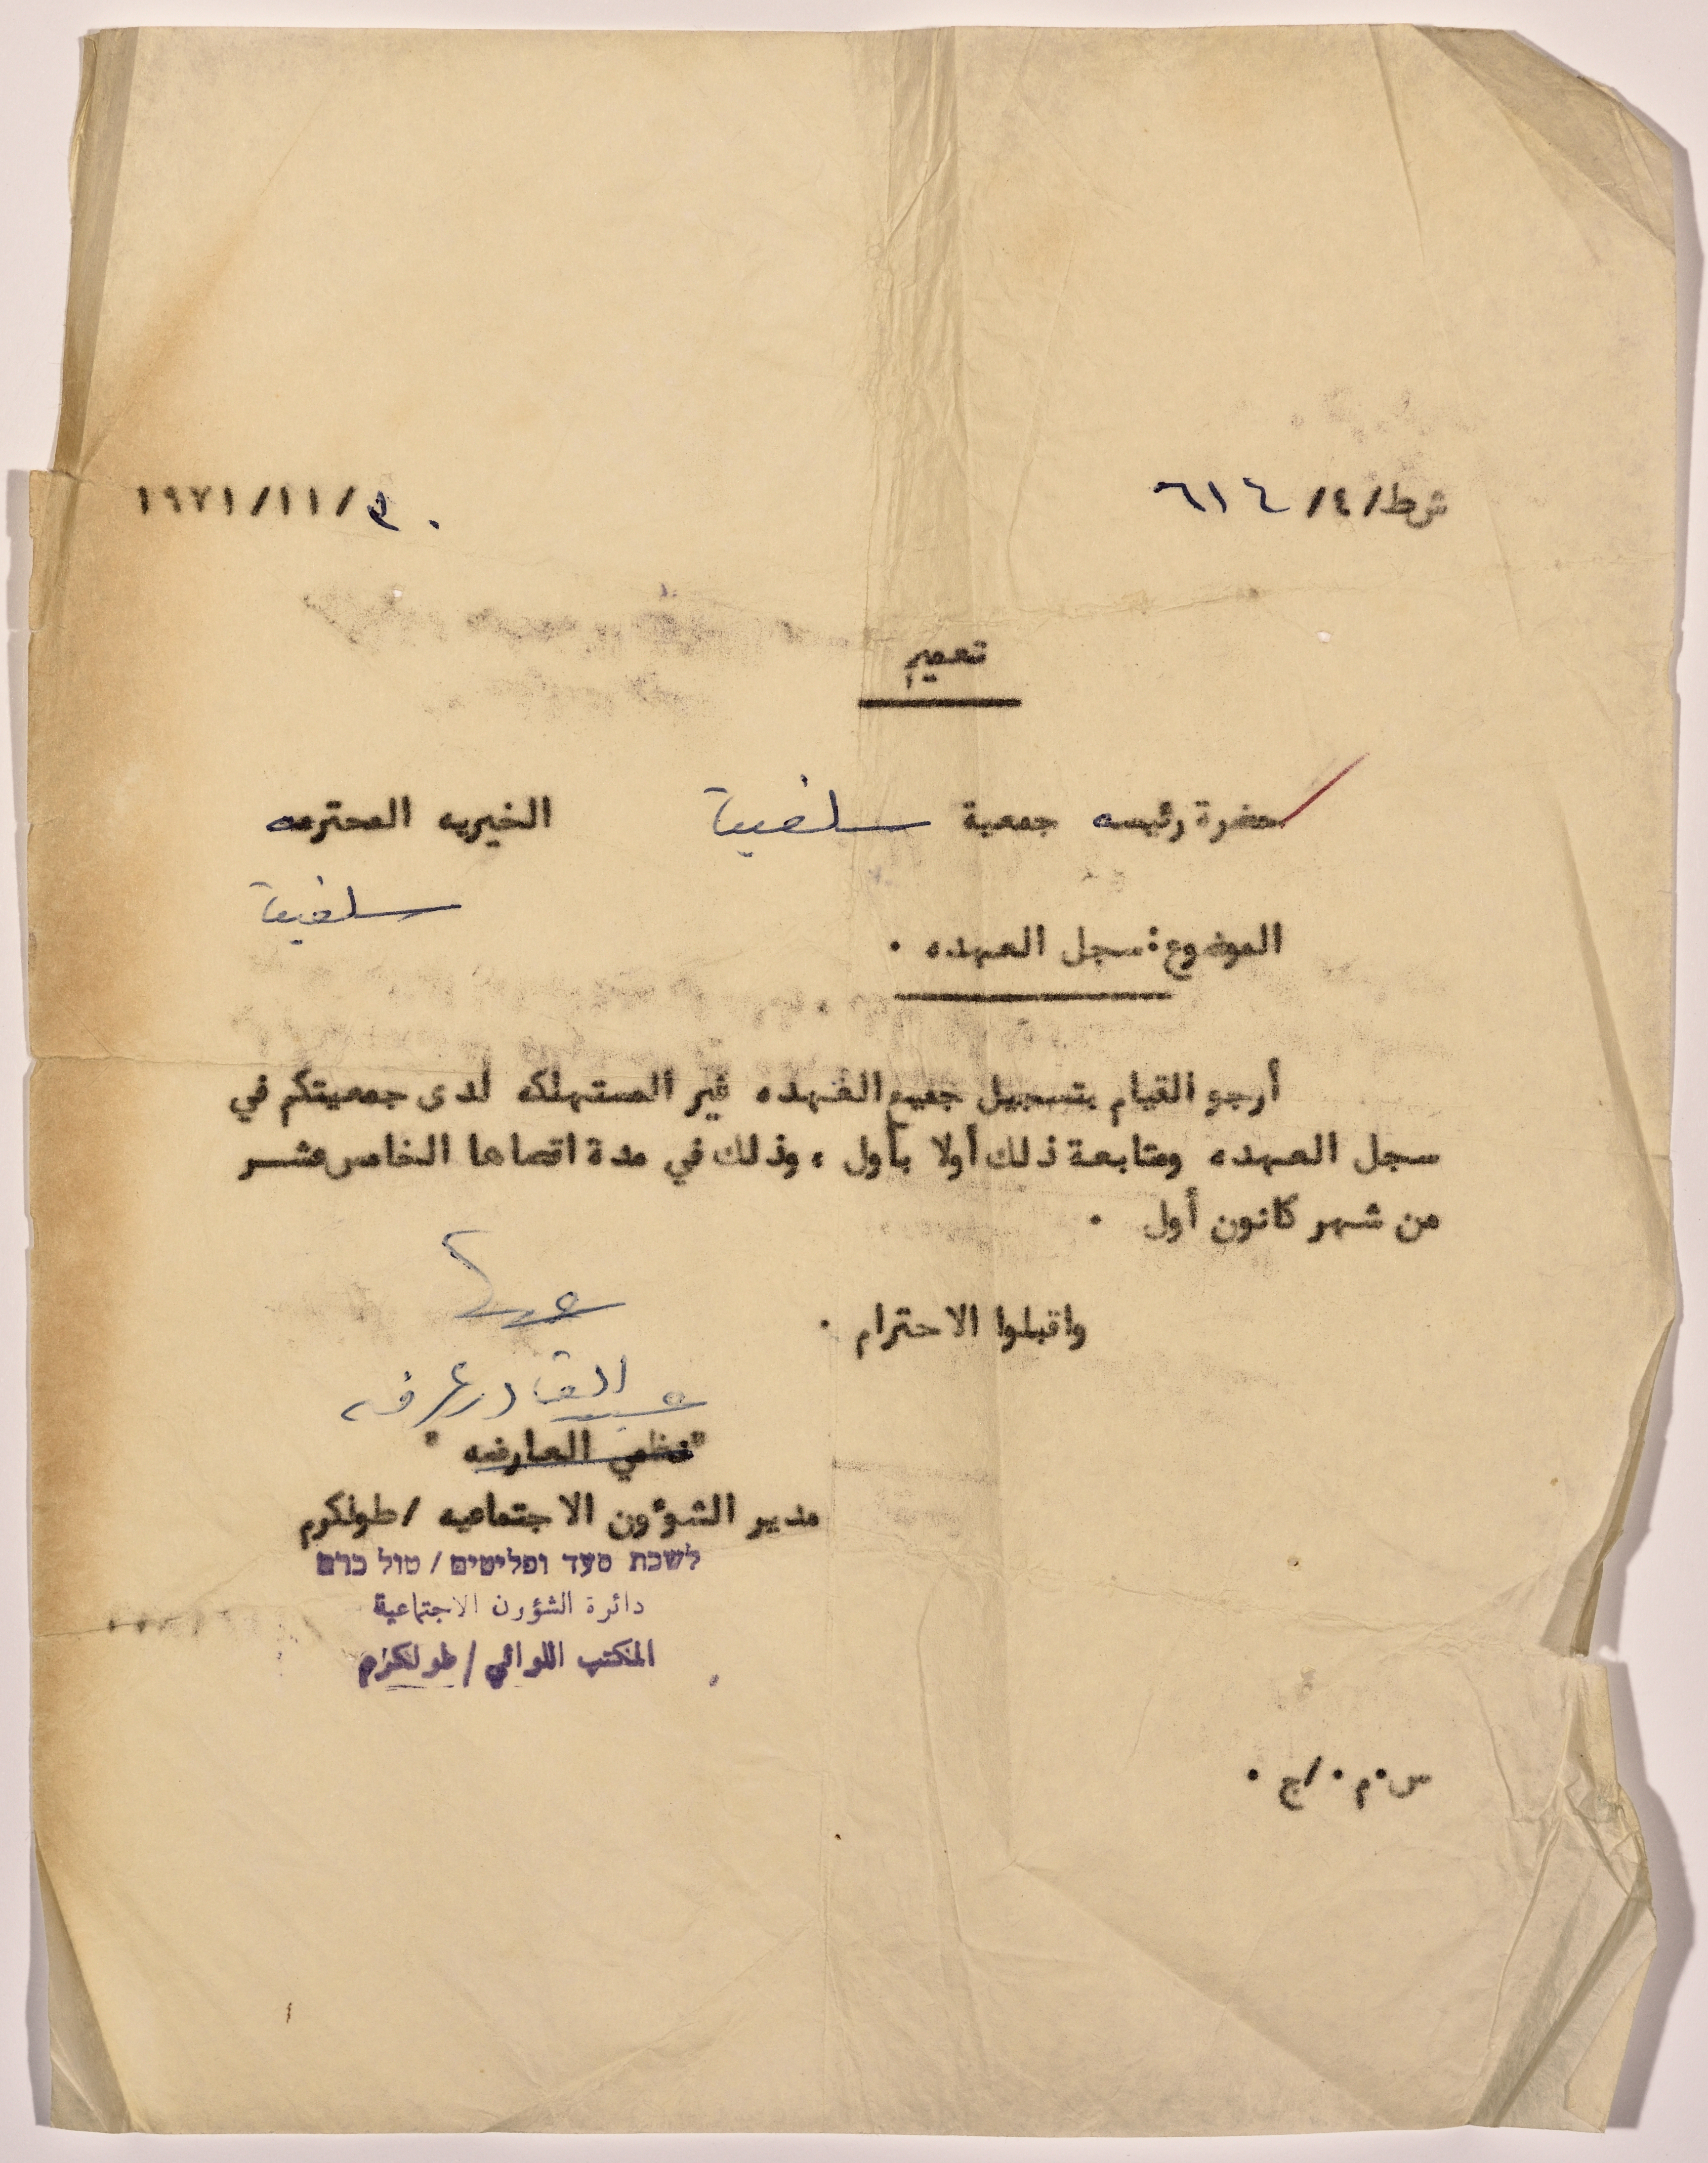 شط/٤/ ٦١٤
٣٠/١١/١٩٧١
تعميم
حضرة رئيسه جمعية سلفيت الخيريه المحترمه
سلفيت
الموضوع: سجل العهده .
أرجو القيام بتسجيل جميع العهده غير المستهلكه لدى جمعيتكم في
سجل العهده ومتابعة ذلك أولا بأول ، وذلك في مدة اقصاها الخامس عشر
من شهر كانون أول .
واقبلوا الاحترام .
عبد القادر عرفه
"نظمي العارضه"
مدير الشؤون الاجتماعيه / طولكرم
לשכת סעד ופליטים / טול כרם
دائرة الشؤون الاجتماعية
المكتب اللوائي / طولكرم
س.م./ج.